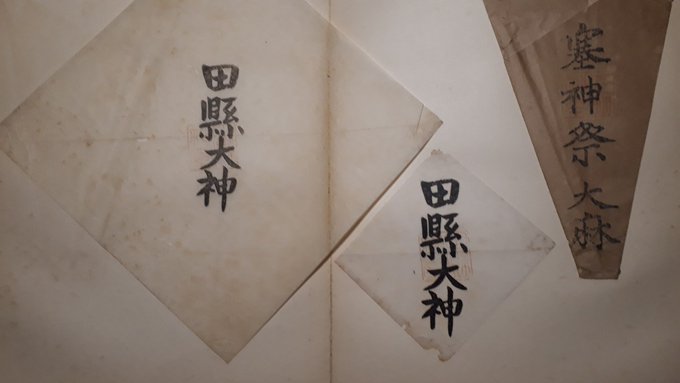 塞神祭 大麻
田縣大神
田縣大神